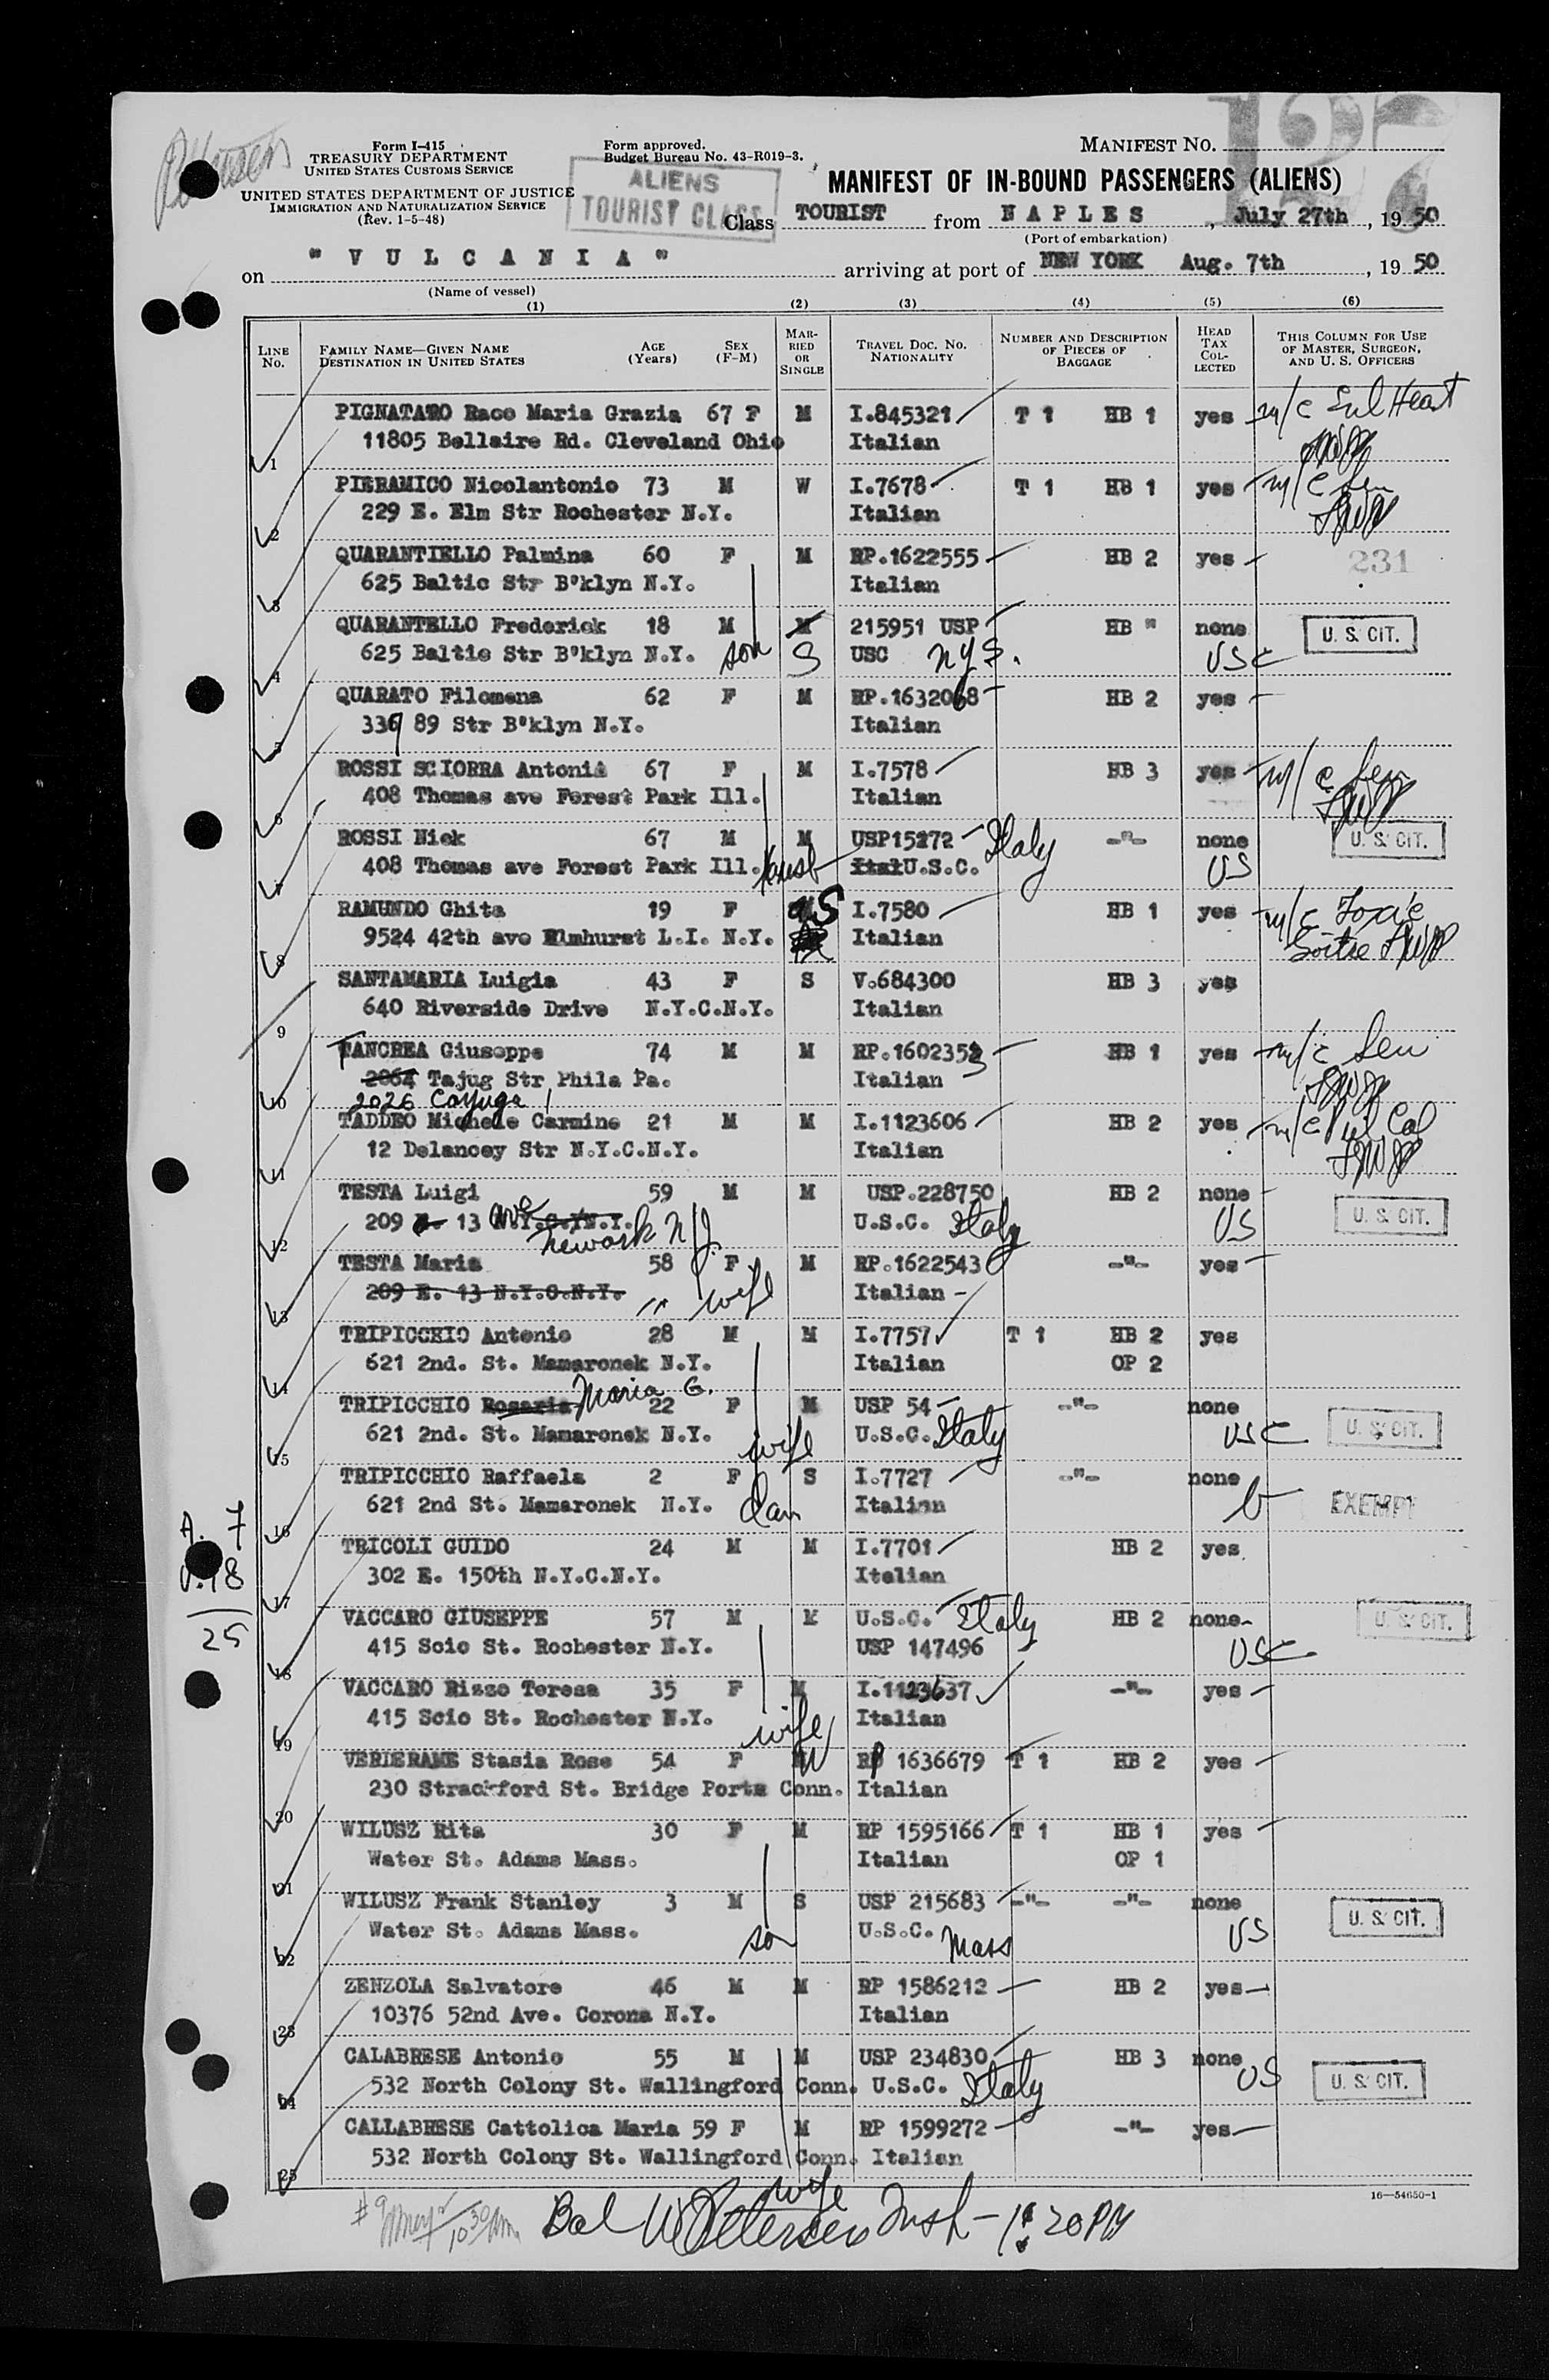 Form I-415
TREASURY DEPARTMENT
UNITED STATES CUSTOMS SERVICE
UNITED STATES DEPARTMENT OF JUSTICE
IMMIGRATION AND NATURALIZATION SERVICE
(Rev. 1-5-48)
Form approved.
Budget Bureau No. 43-R019-3.
ALIENS
TOURIST CLASS
MANIFEST NO.
127
MANIFEST OF IN-BOUND PASSENGERS (ALIENS)
Class TOURIST from N A P L E S , July 27th , 19 50
(Port of embarkation)
on " V U L C A N I A " arriving at port of NEW YORK Aug. 7th , 19 50
(Name of vessel)
(1) (2) (3) (4) (5) (6)
LINE No. FAMILY NAME—GIVEN NAME DESTINATION IN UNITED STATES AGE (Years) SEX (F-M) MARRIED OR SINGLE TRAVEL DOC. NO. NATIONALITY NUMBER AND DESCRIPTION OF PIECES OF BAGGAGE HEAD TAX COLLECTED THIS COLUMN FOR USE OF MASTER, SURGEON, AND U. S. OFFICERS
PIGNATARO Race Maria Grazia 67 F M I.845321 T 1 HB 1 yes m/c Heart
1 11805 Bellaire Rd. Cleveland Ohio Italian
PIERAMICO Nicolantonio 73 M W I.7678 T 1 HB 1 yes m/c Sen
2 229 E. Elm Str Rochester N.Y. Italian
QUARANTIELLO Palmina 60 F M RP.1622555 HB 2 yes 231
3 625 Baltic Str B'klyn N.Y. Italian
QUARANTELLO Frederick 18 M M 215951 USP HB " none U. S. CIT.
4 625 Baltic Str B'klyn N.Y. son S USC N.Y.S. USC
QUARATO Filomena 62 F M RP.1632068 HB 2 yes
5 336 89 Str B'klyn N.Y. Italian
ROSSI SCIORRA Antonia 67 F M I.7578 HB 3 yes m/c Sen
6 408 Thomas ave Forest Park Ill. Italian
ROSSI Nick 67 M M USP15272 Italy -"- none U. S. CIT.
7 408 Thomas ave Forest Park Ill. husb Ital U.S.C. US
RAMUNDO Ghita 19 F S I.7580 HB 1 yes m/c Toxic
8 9524 42th ave Elmhurst L.I. N.Y. Italian Goitre
SANTAMARIA Luigia 43 F S V.684300 HB 3 yes
9 640 Riverside Drive N.Y.C.N.Y. Italian
TANCREA Giuseppe 74 M M RP.1602353 HB 1 yes m/c Sen
10 2064 Tajug Str Phila Pa. Italian
2026 Cayuga
TADDEO Michele Carmine 21 M M I.1123606 HB 2 yes m/c Pul Cal
11 12 Delancey Str N.Y.C.N.Y. Italian
TESTA Luigi 59 M M USP.228750 HB 2 none U. S. CIT.
12 209 E. 13 ave N.Y.C.N.Y. Newark NJ. U.S.C. Italy US
TESTA Maria 58 F M RP.1622543 -"- yes
13 209 E. 13 N.Y.C.N.Y. " wife Italian
TRIPICCHIO Antonio 28 M M I.7757 T 1 HB 2 yes
14 621 2nd. St. Mamaronek N.Y. Italian OP 2
TRIPICCHIO Rosaria Maria G. 22 F M USP 54 -"- none
15 621 2nd. St. Mamaronek N.Y. wife U.S.C. Italy USC U. S. CIT.
TRIPICCHIO Raffaela 2 F S I.7727 -"- none
16 621 2nd St. Mamaronek N.Y. dau Italian EXEMPT
TRICOLI GUIDO 24 M M I.7701 HB 2 yes
17 302 E. 150th N.Y.C.N.Y. Italian
VACCARO GIUSEPPE 57 M M U.S.C. Italy HB 2 none U. S. CIT.
18 415 Scio St. Rochester N.Y. USP 147496 USC
VACCARO Rizzo Teresa 35 F M I.1123637 -"- yes
19 415 Scio St. Rochester N.Y. wife Italian
VERDERAME Stasia Rose 54 F W RP 1636679 T 1 HB 2 yes
20 230 Strackford St. Bridge Porta Conn. Italian
WILUSZ Rita 30 F M RP 1595166 T 1 HB 1 yes
21 Water St. Adams Mass. Italian OP 1
WILUSZ Frank Stanley 3 M S USP 215683 -"- -"- none U. S. CIT.
22 Water St. Adams Mass. son U.S.C. Mass US
ZENZOLA Salvatore 46 M M RP 1586212 HB 2 yes
23 10376 52nd Ave. Corona N.Y. Italian
CALABRESE Antonio 55 M M USP 234830 HB 3 none
24 532 North Colony St. Wallingford Conn. U.S.C. Italy US U. S. CIT.
CALLABRESE Cattolica Maria 59 F M RP 1599272 -"- yes
25 532 North Colony St. Wallingford Conn. Italian
wife
A. 7
U. 18
25
16—54650-1
#9 10 30 Am Bal W Petersen Insp - 1:20 PM